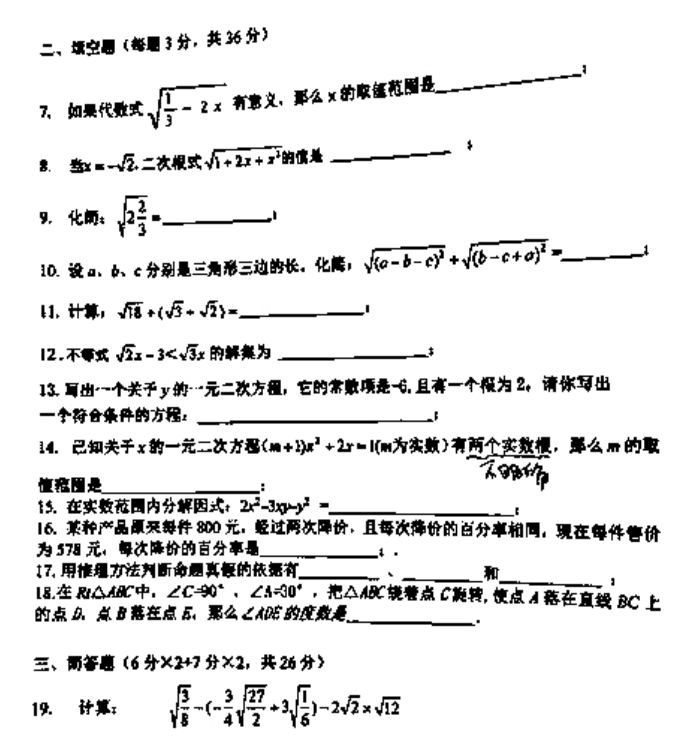 二、填空题（每题3分，共36分）
7、如果代数式 √(1/3 - 2x) 有意义，那么 x 的取值范围是____________；
8. 当x=-√2, 二次根式√(1+2x+x²)的值是 ____________ ；
9. 化简：√(2 2/3) =____________；
10. 设 a、b、c 分别是三角形三边的长，化简：√(a-b-c)² + √(b-c+a)² =________；
11. 计算：√18 ÷(√3+√2)=____________；
12.不等式 √2x-3<√3x 的解集为 ____________；
13. 写出一个关于y的一元二次方程，它的常数项是-6,且有一个根为2，请你写出
一个符合条件的方程：____________；
14. 已知关于x的一元二次方程(m+1)x²+2x=1(m为实数)有两个实数根，那么m的取
值范围是____________；
15. 在实数范围内分解因式：2x²-3xy-y² =____________；
16. 某种产品原来每件800元，经过两次降价，且每次降价的百分率相同，现在每件售价
为578元，每次降价的百分率是____________；.
17.用推理方法判断命题真假的依据有________、________和____________；
18.在Rt△ABC中，∠C=90°，∠A=30°，把△ABC绕着点C旋转,使点A落在直线BC上
的点D，点B落在点E，那么∠ADE的度数是____________.
三、简答题（6分×2+7分×2，共26分）
19. 计算： √(3/8) -(-3/4 √(27/2) +3√(1/6))-2√2×√12